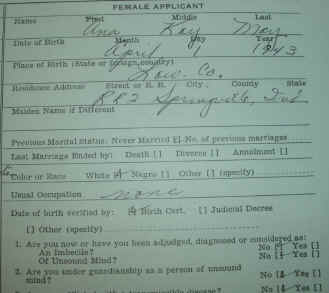 FEMALE APPLICANT
Name First Middle Last
Ana Kay May
Date of Birth Month Day Year
April 1 1943
Place of Birth (State or foreign country)
Law. Co.
Residence Address Street or R. R. City County State
RR2 Springville, Ind
Maiden Name if Different
Previous Marital Status: Never Married [] No. of previous marriages
Last Marriage Ended by: Death [] Divorce [] Annulment []
Color or Race White [X] Negro [] Other [] (specify)
Usual Occupation none
Date of birth verified by: [X] Birth Cert. [] Judicial Decree
[] Other (specify)
1. Are you now or have you been adjudged, diagnosed or considered as:
An Imbecile? No [] Yes []
Of Unsound Mind? No [] Yes []
2. Are you under guardianship as a person of unsound
mind? No [] Yes []
transmissible disease? No [] Yes []